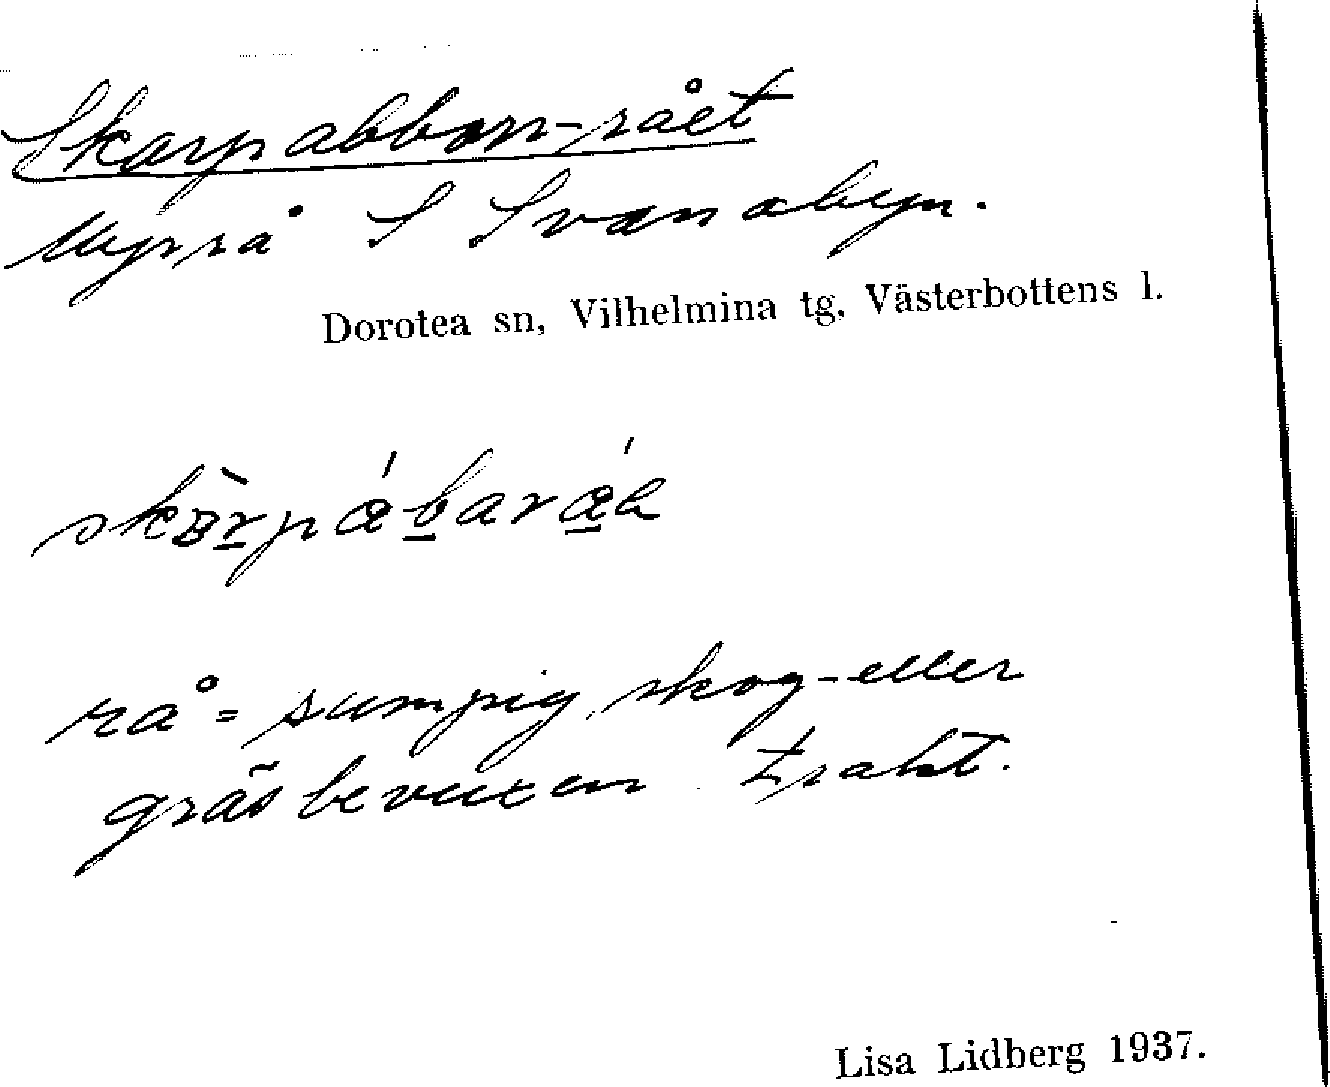 Skarpabborr-rået
Myrrå S Svanabyn.
Dorotea sn, Vilhelmina tg, Västerbottens l.
rå = sumpig skog- eller
gräsbevuxen trakt.
Lisa Lidberg 1937.